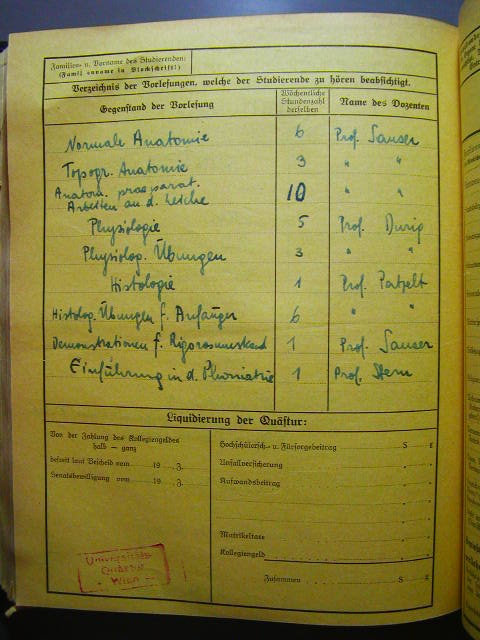 Familien- u. Vorname des Studierenden:
(Famil enname in Blockschrift!)
Verzeichnis der Vorlesungen, welche der Studierende zu hören beabsichtigt.
Gegenstand der Vorlesung
Wöchentliche Stundenzahl derselben
Name des Dozenten
Normale Anatomie 6 Prof. Sauser
Topogr. Anatomie 3 " "
Anatom. praeparat.
Arbeiten an d. Leiche 10 " "
Physiologie 5 Prof. Durig
Physiolog. Übungen 3 " "
Histologie 1 Prof. Patzelt
Histolog. Übungen f. Anfänger 6 " "
Demonstrationen f. 1 Prof. Sauser
Einführung in d. 1 Prof. Stern
Liquidierung der Quästur:
Von der Zahlung des Kollegiengeldes
halb — ganz
befreit laut Bescheid vom 19 . Z.
Senatsbewilligung vom 19 . Z.
Hochschülersch.- u. Fürsorgebeitrag S g
Unfallversicherung
Aufwandsbeitrag
Matrikeltaxe
Kollegiengeld
Zusammen S g
Universitäts
Quästur
Wien